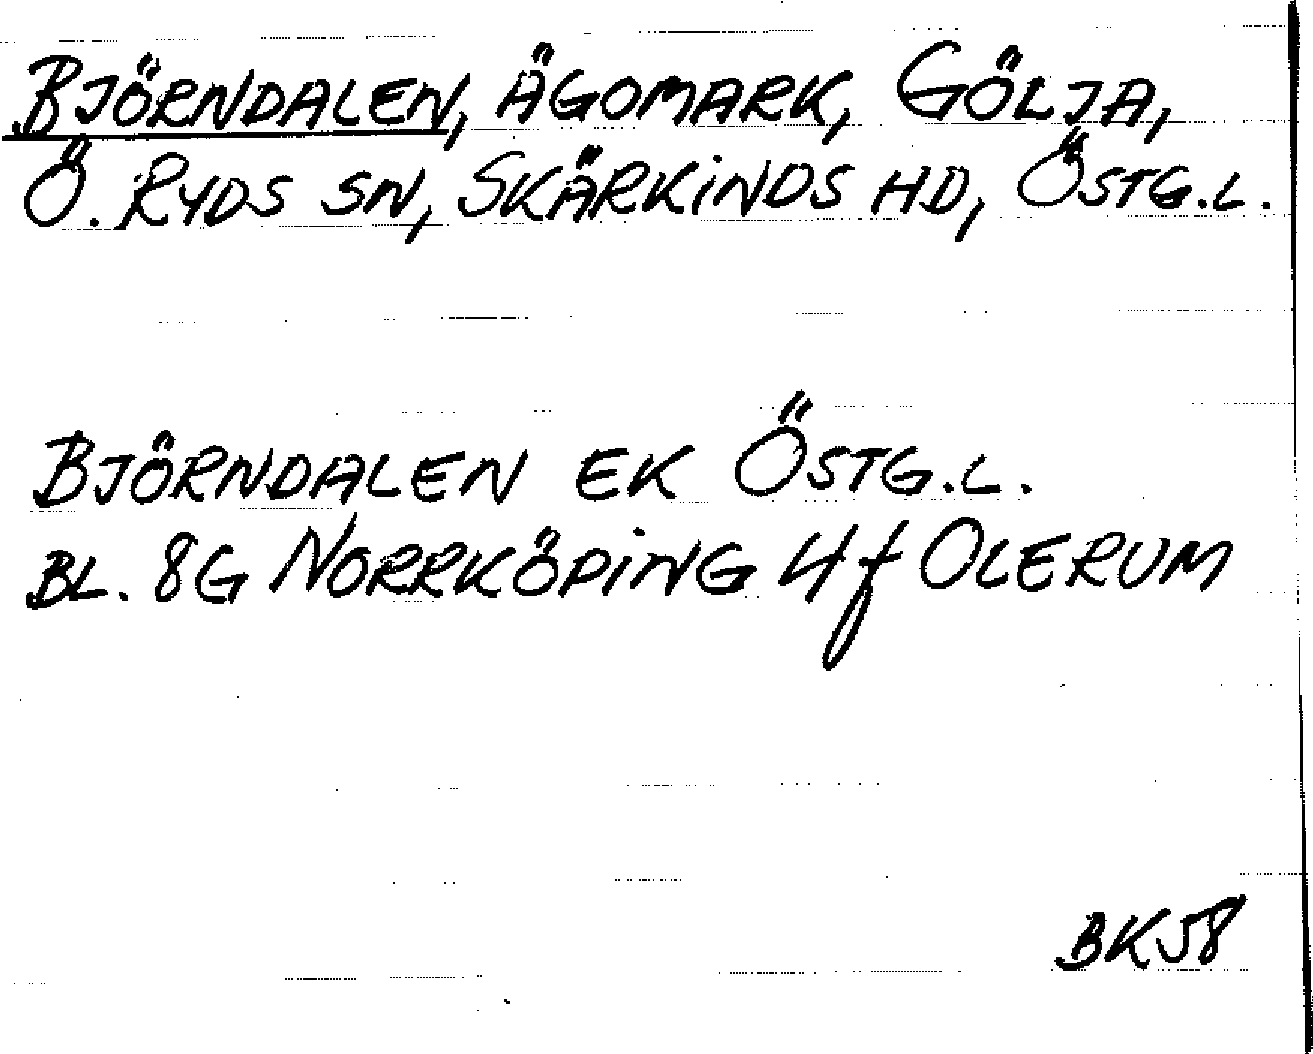 BJÖRNDALEN, ÄGOMARK, GÖLJA,
Ö. RYDS SN, SKÄRKINDS HD, ÖSTG.L.
BJÖRNDALEN EK ÖSTG.L.
BL. 8G NORRKÖPING 4f OLERUM
BK58